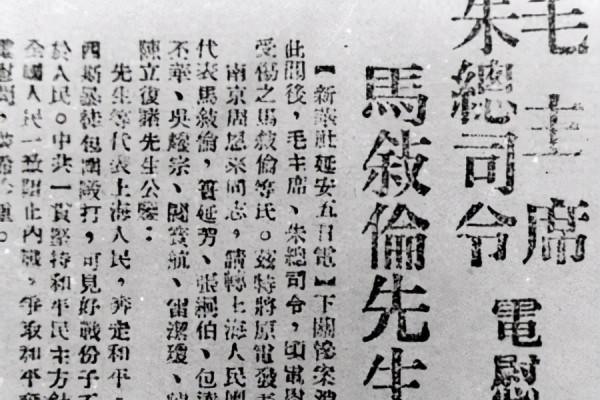 毛主席
朱總司令
電慰
馬敘倫先生
【新華社延安五日電】下關慘案消
此間後，毛主席、朱總司令，頃電慰
受傷之馬敘倫等氏。茲特將原電發表
南京周恩來同志，請轉上海人民團
代表馬敘倫，簣延芳、張絅伯、包達
丕華、吳耀宗、閻寶航、雷潔瓊、
陳立復諸先生公鑒：
先生等代表上海人民，奔走和平，
西斯暴徒包圍毆打，可見好戰份子不
於人民。中共一貫堅持和平民主方針
全國人民一致阻止內戰，爭取和平